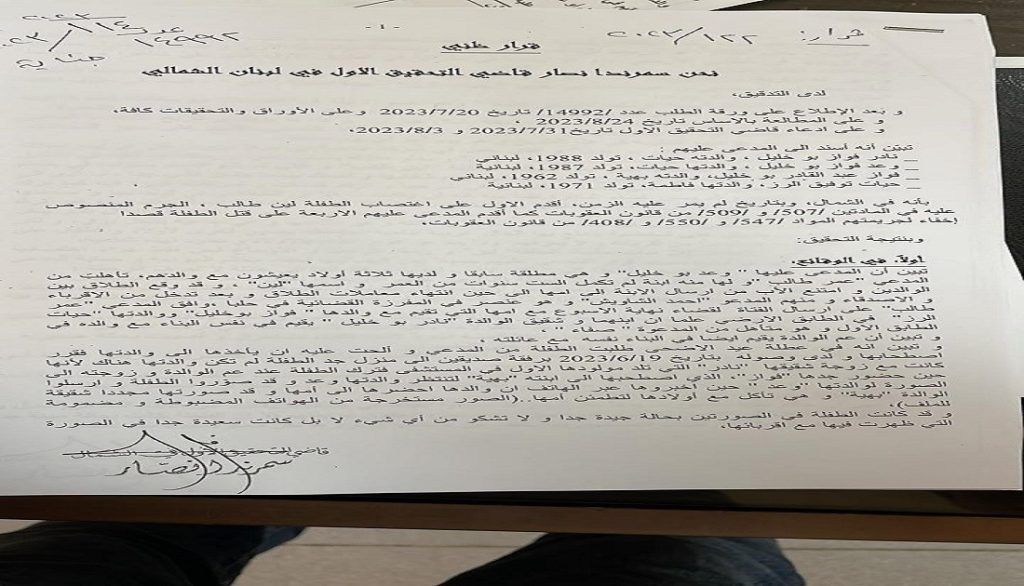 - ١ -
قرار: ١٢٢/٢٠٢٣
جناية
قرار ظني
نحن سمرندا نصار قاضي التحقيق الأول في لبنان الشمالي
لدى التدقيق،
و بعد الإطلاع على ورقة الطلب عدد /14992/ تاريخ 2023/7/20 وعلى الأوراق والتحقيقات كافة،
و على المطالعة بالاساس تاريخ 2023/8/24 ،
و على ادعاء قاضي التحقيق الأول تاريخ 2023/7/31 و 2023/8/3،
تبيّن أنه أسند الى المدعى عليهم :
_ نادر فواز بو خليل ، والدته حيات ، تولد 1988، لبناني
_ وعد فواز بو خليل ، والدتها حيات، تولد 1987، لبنانية
_ فواز عبد القادر بو خليل، والدته بهية ، تولد 1962، لبناني
_ حيات توفيق الرز، والدتها فاطمة، تولد 1971، لبنانية
بأنه في الشمال، وبتاريخ لم يمر عليه الزمن، أقدم الاول على اغتصاب الطفلة لين طالب ، الجرم المنصوص
عليه في المادتين /507/ و /509/ من قانون العقوبات كما أقدم المدعى عليهم الاربعة على قتل الطفلة قصدا
إخفاء لجريمتهم المواد /547/ و /550/ و /408/ من قانون العقوبات.
وبنتيجة التحقيق:
أولاً: في الوقائع:
تبين أن المدعى عليها " وعد بو خليل" و هي مطلقة سابقا و لديها ثلاثة أولاد يعيشون مع والدهم، تأهلت من
المدعي "عمر طالب" و لها منه ابنة لم تكمل الست سنوات من العمر و اسمها "لين" ، و قد وقع الطلاق بين
الوالدين و امتنع الأب من ارسال الابنة الى امها الى حين انتهاء معاملات الطلاق و بعد تدخل من الأقرباء
و الاصدقاء و منهم المدعو "احمد الشاويش" و هو عنصر في المفرزة القضائية في حلبا، وافق المدعي "عمر
طالب" على ارسال الفتاة لقضاء نهاية الاسبوع مع امها التي تقيم مع والدها " فواز بوخليل" ووالدتها "حيات
الرز" في الطابق الارضي علما ان ابنهما و شقيق الوالدة "نادر بو خليل " يقيم في نفس البناء مع والده في
الطابق الاول و هو متأهل من المدعوة " صفاء"
و تبين أن عم الوالدة يقيم ايضا في البناء نفسه مع عائلته .
و تبين أنه في عطلة عيد الاضحى طلبت الطفلة من المدعي و ألحت عليه ان يأخذها الى والدتها فقرر
اصطحابها و لدى وصوله بتاريخ 2023/6/19 برفقة صديقين الى منزل جد الطفلة لم تكن والدتها هناك لأنها
كانت مع زوجة شقيقها "نادر" التي تلد مولودها الاول في المستشفى فترك الطفلة عند عم الوالدة و زوجته الى
حين حضور جدها "فواز" الذي اصطحبها الى ابنته "بهية" لتنتظر والدتها وعد و قد صوّروا الطفلة و ارسلوا
الصورة لوالدتها "وعد" حين اخبروها عبر الهاتف ان والدها احضرها الى امها و قد صورتها مجددا شقيقة
الوالدة "بهية" و هي تأكل مع أولادها لتطمئن امها..(الصور مستخرجة من الهواتف المضبوطة و مضمومة
للملف)،
و قد كانت الطفلة في الصورتين بحالة جيدة جدا و لا تشكو من أي شيء لا بل كانت سعيدة جدا في الصورة
التي ظهرت فيها مع اقربائها.
قاضي التحقيق الأول في الشمال
سمرندا نصار